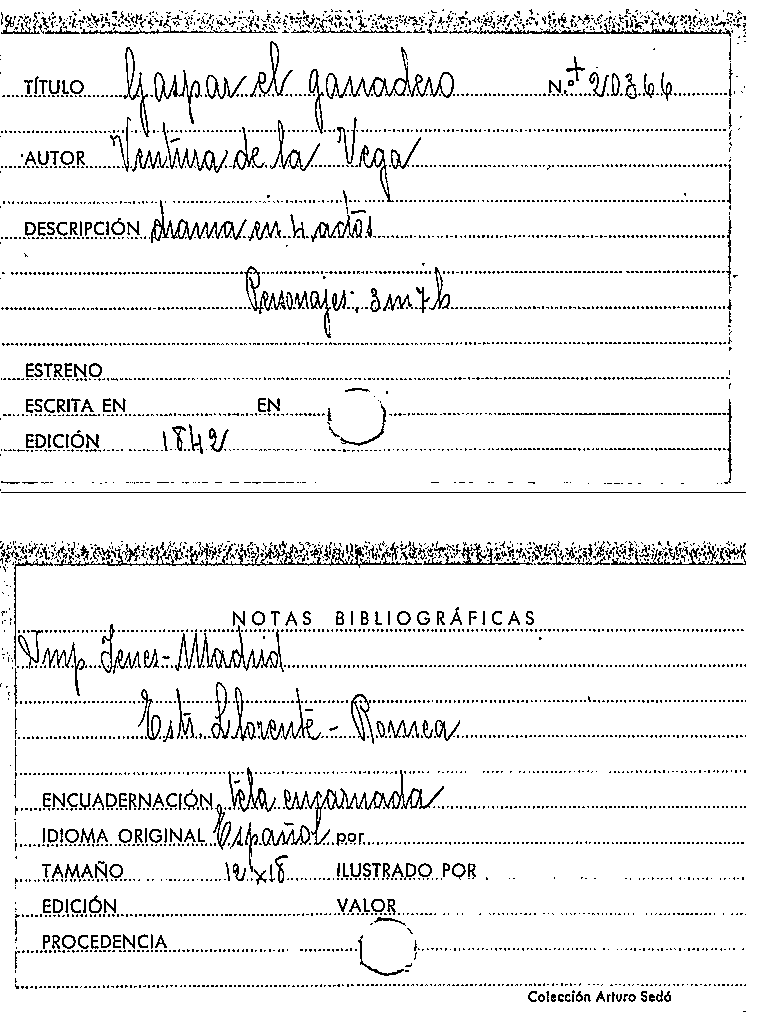 TÍTULO Gaspar el ganadero N.º + 20366
AUTOR Ventura de la Vega
DESCRIPCIÓN drama en 4 actos
Personajes: 3 m 7 h
ESTRENO
ESCRITA EN EN
EDICIÓN 1842
NOTAS BIBLIOGRÁFICAS
Ymp Yenes - Madrid
Estr. Llorente - Romea
ENCUADERNACIÓN tela encarnada
IDIOMA ORIGINAL Español por
TAMAÑO 12 x 18 ILUSTRADO POR
EDICIÓN VALOR
PROCEDENCIA
Colección Arturo Sedó